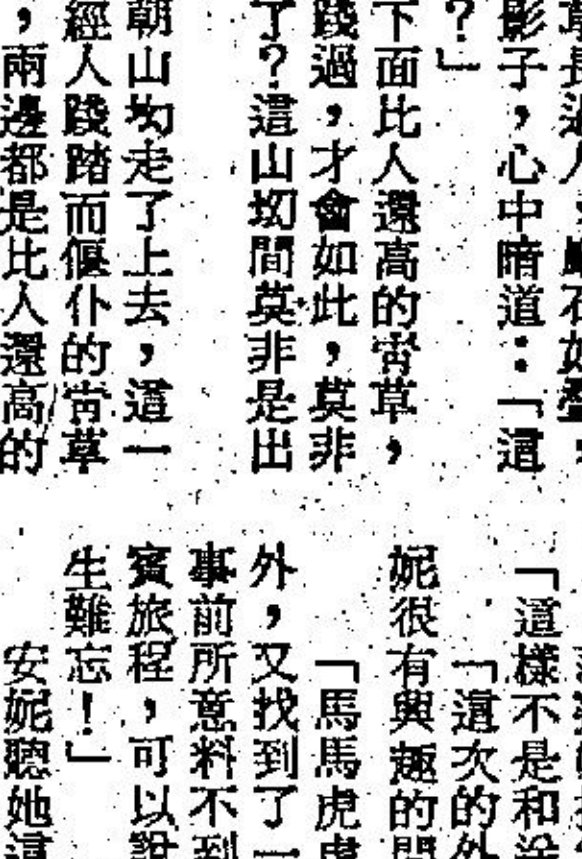 影子，心中暗道：「這
？」
下面比人還高的菅草，
踐過，才會如此，莫非
了？這山坳間莫非是出
朝山坳走了上去，這一
經人踐踏而偃仆的菅草
，兩邊都是比人還高的
「這樣不是和
「這次的外
妮很有興趣的問
「馬馬虎虎
外，又找到了一
事前所意料不到
賓旅程，可以說
生難忘！」
安妮聽她這